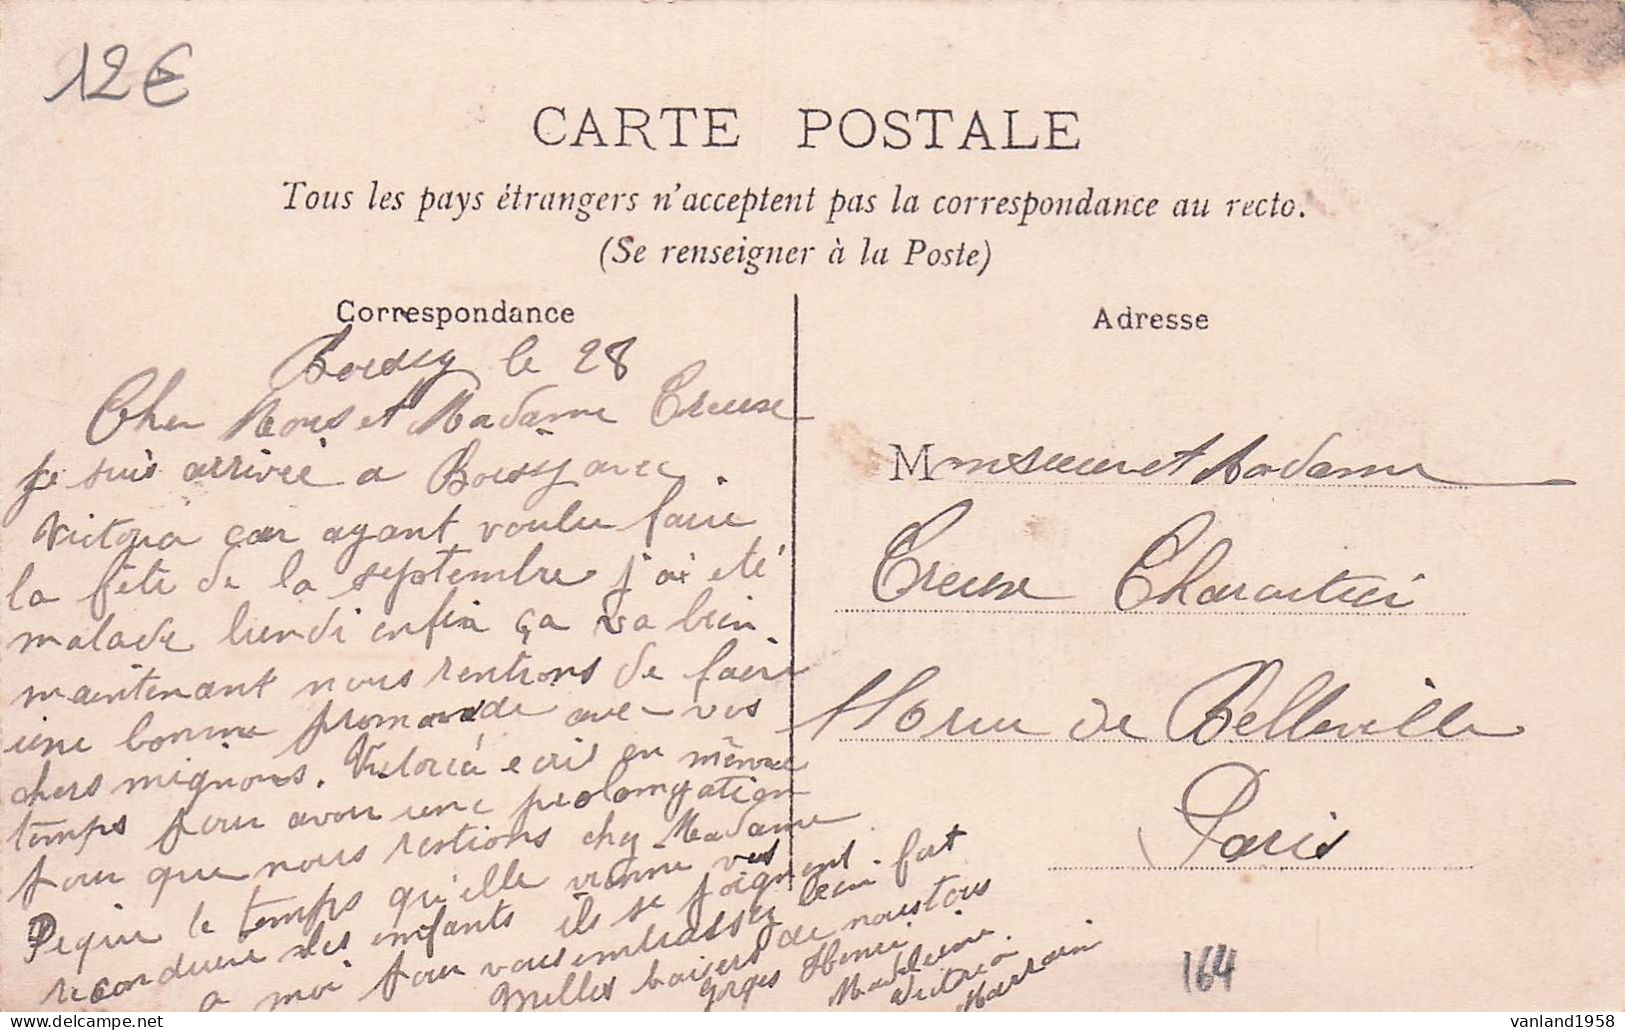 12€
CARTE POSTALE
Tous les pays étrangers n'acceptent pas la correspondance au recto.
(Se renseigner à la Poste)
Correspondance
Boissy le 28
Cher Mons et Madame Creuse
Je suis arrivée a Boissy avec
Victoria car ayant voulu faire
la fête de la septembre j'ai été
malade lundi enfin ça va bien
maintenant nous rentrons de faire
une bonne promenade avec vos
chers mignons. Victoria ecris en même
temps pour avoir une prolongation
pour que nous restions chez Madame
le temps qu'elle vienne vos
reconduire les enfants ils se joignent
a moi pour vous embrasser bien fort
Milles baisers de nous tous
Gorges Henri
Madeleine
Victoria
Adresse
M onsieur et Madame
Creuse Charcutier
rue de Belleville
Paris
164
vanland1958